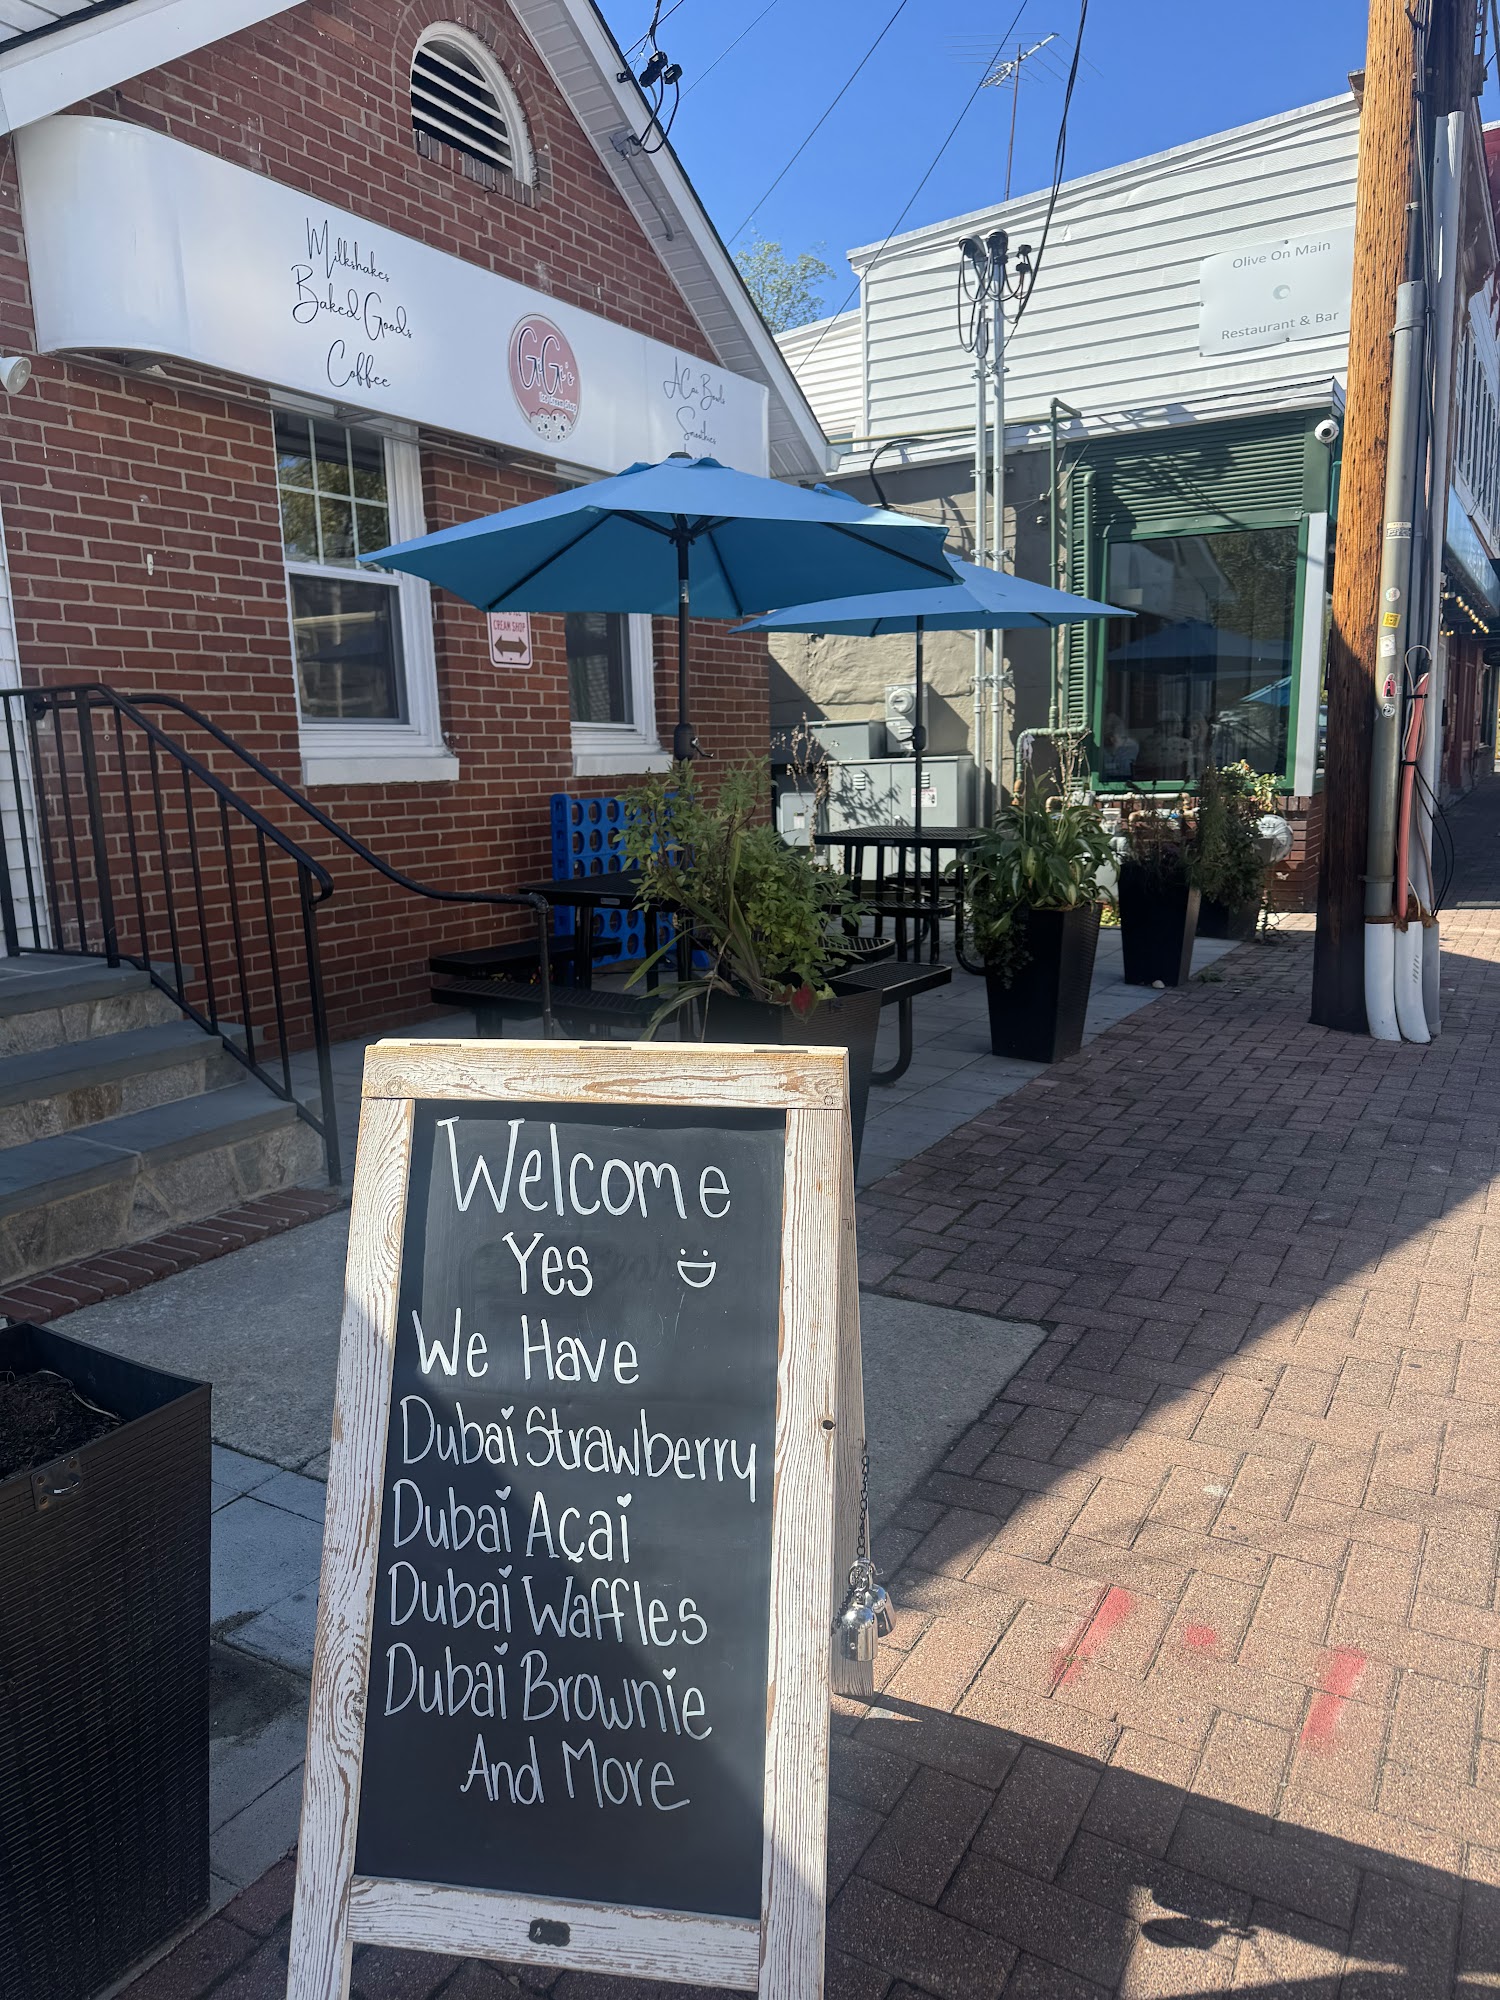 Milkshakes
Baked Goods
Coffee
GiGi's
Ice Cream Shop
AÇai Bowls
Smoothies
Olive On Main
Restaurant & Bar
CREAM SHOP
Welcome
Yes
We Have
Dubai Strawberry
Dubai Açai
Dubai Waffles
Dubai Brownie
And More